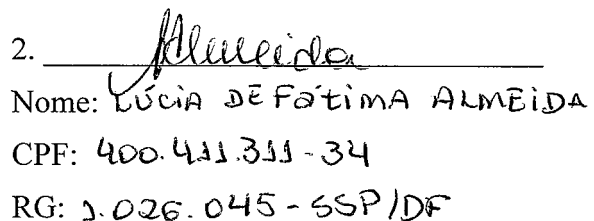 2. Almeida
Nome: LÚCIA DE FÁTIMA ALMEIDA
CPF: 400.411.311-34
RG: 1.026.045-SSP/DF